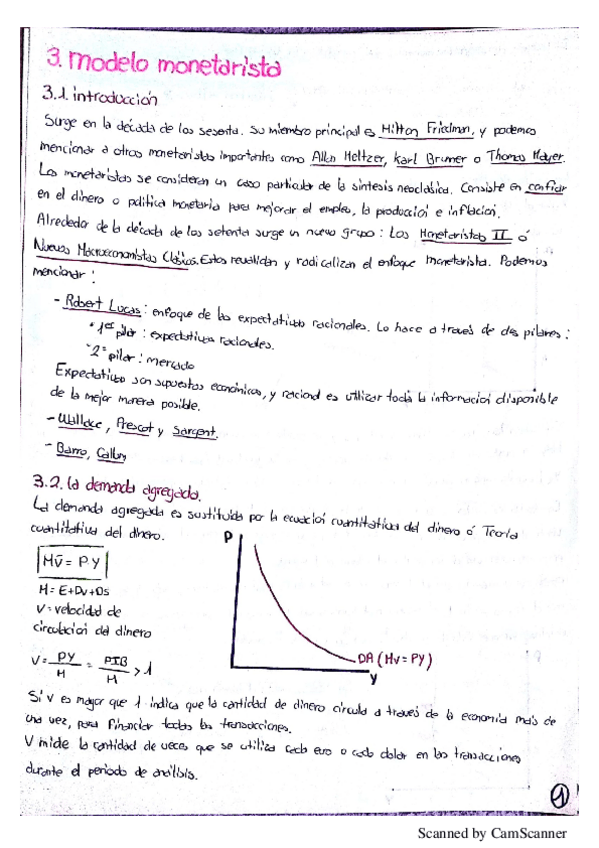 3. Modelo monetarista
3.1. introducción
Surge en la década de los sesenta. Su miembro principal es Milton Friedman, y podemos
mencionar a otros monetaristas importantes como Allen Meltzer, Karl Brumer o Thomas Mayer.
Los monetaristas se consideran un caso particular de la síntesis neoclásica. Consiste en confiar
en el dinero o política monetaria para mejorar el empleo, la producción e inflación.
Alrededor de la década de los setenta surge un nuevo grupo: Los Monetaristas II ó
Nuevos Macroeconomistas Clásicos. Estos revalidan y radicalizan el enfoque monetarista. Podemos
mencionar:
- Robert Lucas: enfoque de las expectativas racionales. Lo hace a través de dos pilares:
• 1er pilar: expectativas racionales.
• 2º pilar: mercado
Expectativas son supuestos económicos, y racional es utilizar toda la información disponible
de la mejor manera posible.
- Wallace, Prescot y Sargent.
- Barro, Callum
3.2. La demanda agregada.
La demanda agregada es sustituida por la ecuación cuantitativa del dinero ó Teoría
cuantitativa del dinero.
P
MV̄ = P.Y
M = E+Dv+Ds
V = velocidad de
circulación del dinero
DA (Mv = PY)
Y
V = PY/M = PIB/M > 1
Si V es mayor que 1 indica que la cantidad de dinero circula a través de la economía más de
una vez, para financiar todas las transacciones.
V mide la cantidad de veces que se utiliza cada euro o cada dolar en las transacciones
durante el periodo de análisis.
1
Scanned by CamScanner